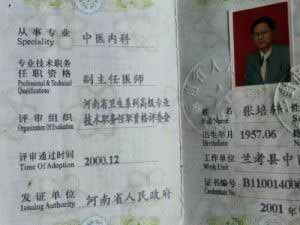 从事专业 中医内科
Speciality
专业技术职务
任职资格 副主任医师
Professional & Technical
Qualifications
河南省卫生系列高级专业
评审组织 技术职务任职资格评委会
Organization Of Evaluation
评审通过时间 2000.12
Time Of Adoption
发证单位 河南省人民政府
Issuing Authority
姓 张培
出生年月 1957.06
工作单位 兰考县中
证书编号 B11001400
2001